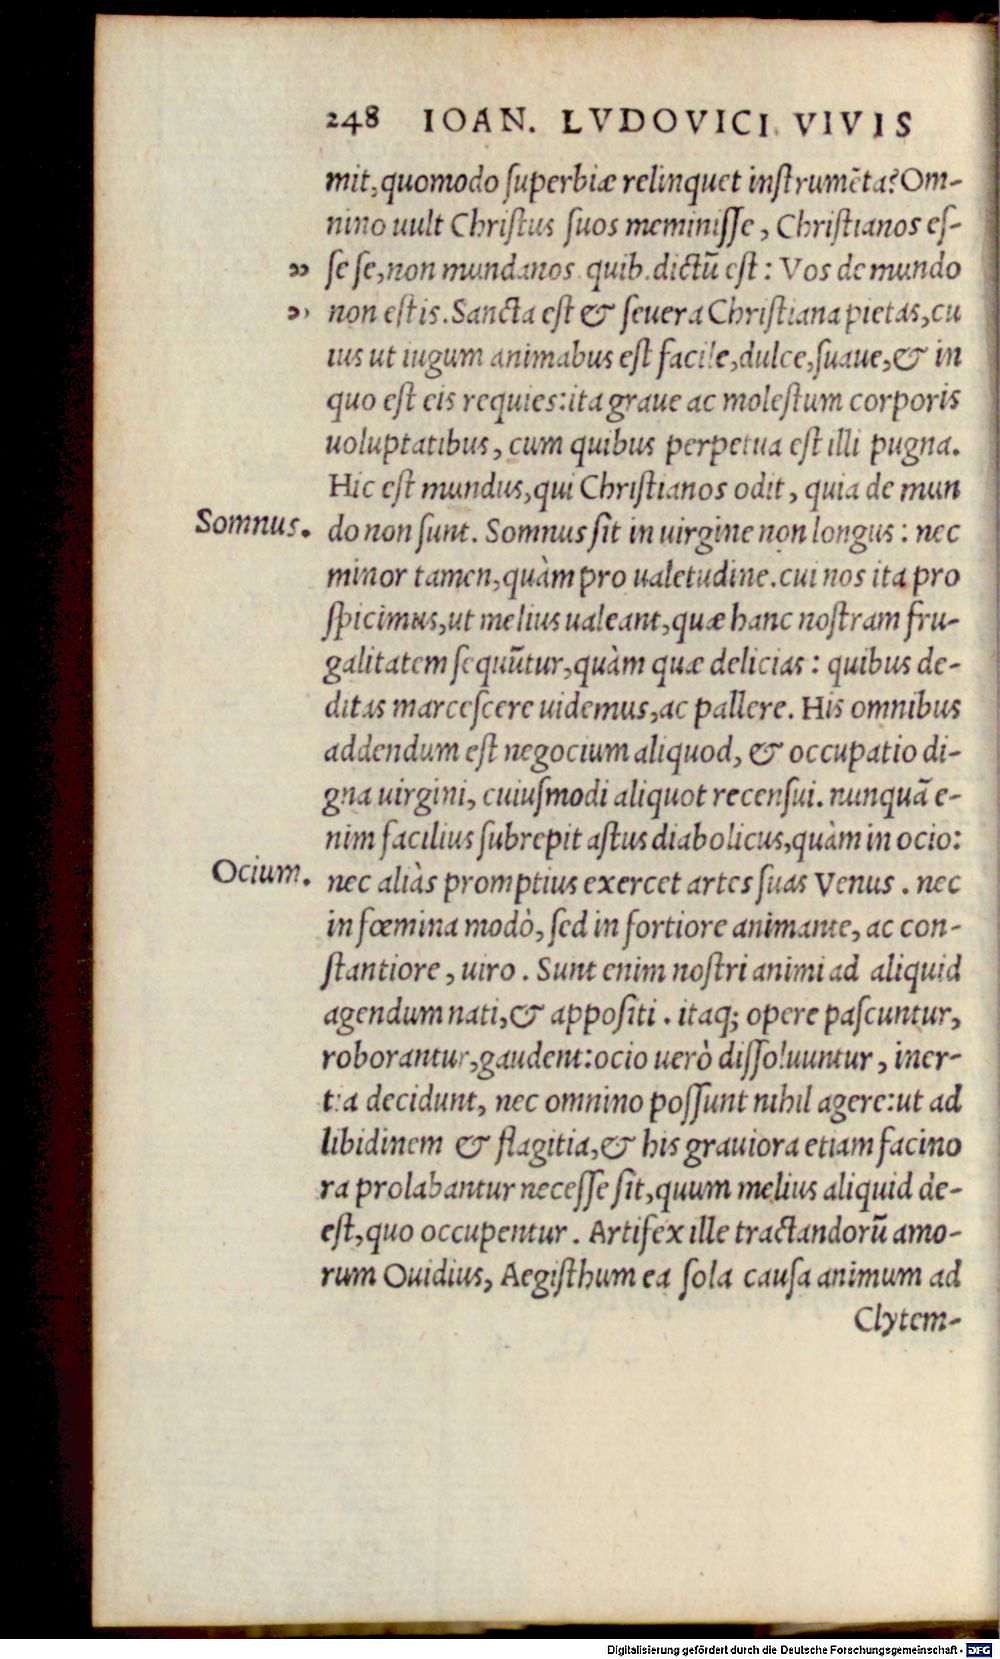 248 IOAN. LVDOVICI VIVIS
mit, quomodo ſuperbiæ relinquet inſtrumēta? Om-
nino uult Chriſtus ſuos meminiſſe, Chriſtianos eſ-
„ ſe ſe, non mundanos. quib. dictū eſt: Vos de mundo
„ non eſtis. Sancta eſt & ſeuera Chriſtiana pietas, cu
ius ut iugum animabus eſt facile, dulce, ſuaue, & in
quo eſt eis requies: ita graue ac moleſtum corporis
uoluptatibus, cum quibus perpetua eſt illi pugna.
Hic eſt mundus, qui Chriſtianos odit, quia de mun
Somnus. do non ſunt. Somnus ſit in uirgine non longus: nec
minor tamen, quàm pro ualetudine. cui nos ita pro
ſpicimus, ut melius ualeant, quæ hanc noſtram fru-
galitatem ſequūtur, quàm quæ delicias: quibus de-
ditas marceſcere uidemus, ac pallere. His omnibus
addendum eſt negocium aliquod, & occupatio di-
gna uirgini, cuiuſmodi aliquot recenſui. nunquā e-
nim facilius ſubrepit aſtus diabolicus, quàm in ocio:
Ocium. nec aliàs promptius exercet artes ſuas Venus. nec
in fœmina modò, ſed in fortiore animante, ac con-
ſtantiore, uiro. Sunt enim noſtri animi ad aliquid
agendum nati, & appoſiti. itaq; opere paſcuntur,
roborantur, gaudent: ocio uerò diſſoluuntur, iner-
tia decidunt, nec omnino poſſunt nihil agere: ut ad
libidinem & flagitia, & his grauiora etiam facino
ra prolabantur neceſſe ſit, quum melius aliquid de-
eſt, quo occupentur. Artifex ille tractandorū amo-
rum Ouidius, Aegiſthum ea ſola cauſa animum ad
Clytem-
Digitalisierung gefördert durch die Deutsche Forschungsgemeinschaft - DFG